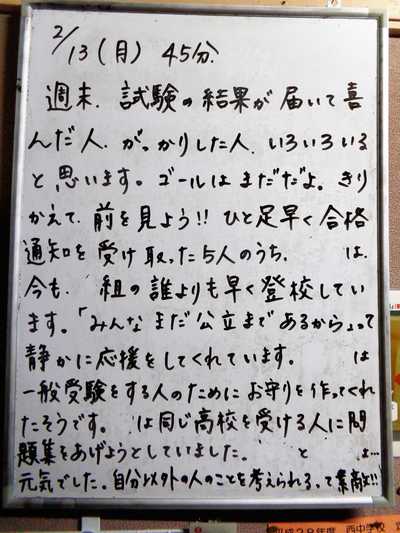 2/13(月) 45分.
週末、試験の結果が届いて喜
んだ人、がっかりした人、いろいろいる
と思います。ゴールはまだだよ。きり
かえて、前を見よう!!ひと足早く合格
通知を受け取った5人のうち、 は、
今も、 組の誰よりも早く登校してい
ます。「みんなまだ公立まであるから」って
静かに応援をしてくれています。 は
一般受験をする人のためにお守りを作ってくれ
たそうです。 は同じ高校を受ける人に問
題集をあげようとしていました。 と は…
元気でした。自分以外の人のことを考えられるって素敵!!
平成28年度 西中学校